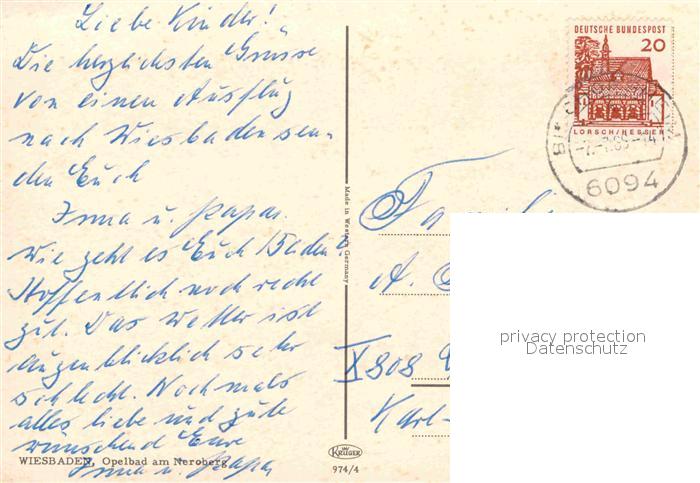 Liebe Kinder!
Die herzlichsten Grüsse
von einen Ausflug
nach Wiesbaden sen-
den Euch
Irma u. Papa.
Wie geht es Euch Beiden?
Hoffentlich noch recht
gut. Das Wetter ist
augenblicklich sehr
schlecht. Nochmals
alles liebe und gute
wünschend Eure
Irma u. Papa
WIESBADEN, Opelbad am Neroberg
Made in Western Germany
KRÜGER
974/4
DEUTSCHE BUNDESPOST
20
LORSCH/HESSEN
6094
Famili
A.
X808
Karl-
privacy protection
Datenschutz